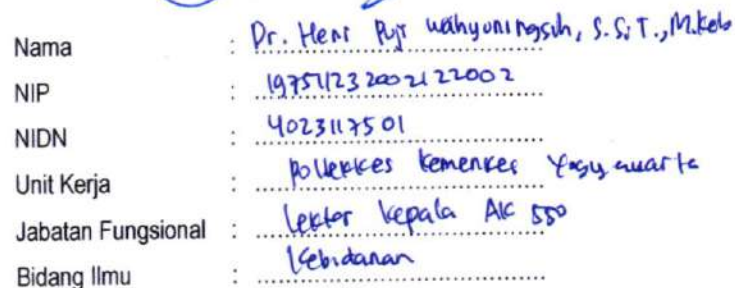 Nama : Dr. Heni Puji Wahyuningsih, S.SiT., M.Keb
NIP : 197511232002122002
NIDN : 4023117501
Unit Kerja : Poltekkes Kemenkes Yogyakarta
Jabatan Fungsional : Lektor Kepala AK 550
Bidang Ilmu : Kebidanan